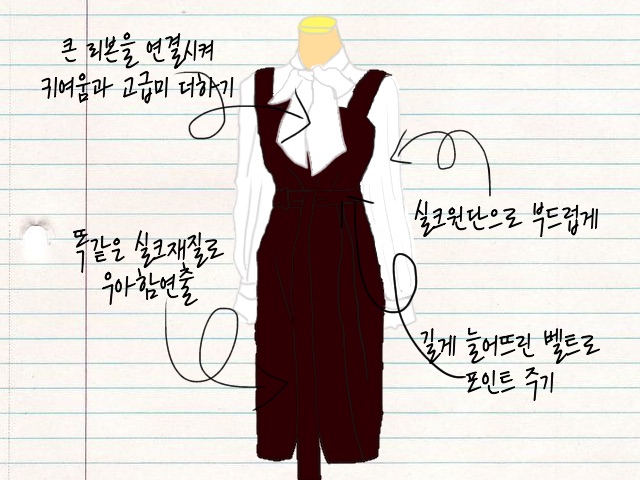 큰 리본을 연결시켜
귀여움과 고급미 더하기
실크원단으로 부드럽게
똑같은 실크재질로
우아함연출
길게 늘어뜨린 벨트로
포인트 주기